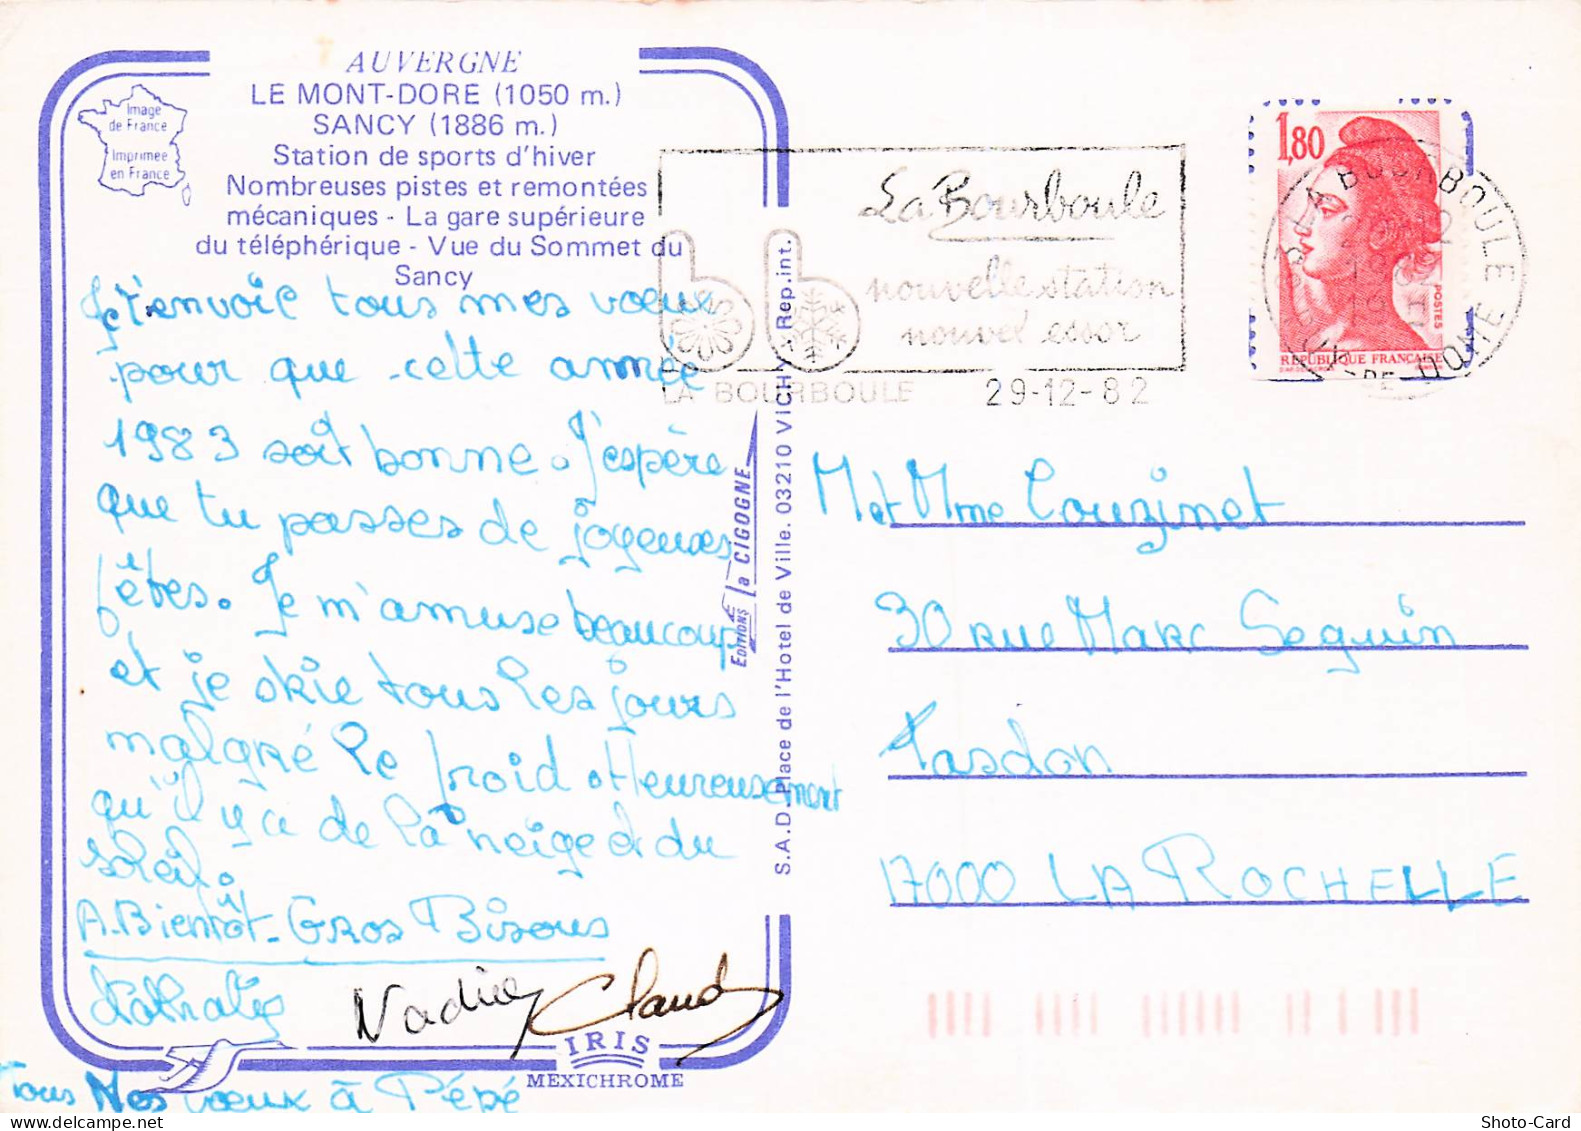 AUVERGNE
LE MONT-DORE (1050 m.)
SANCY (1886 m.)
Station de sports d'hiver
Nombreuses pistes et remontées
mécaniques - La gare supérieure
du téléphérique - Vue du Sommet du
Sancy
Image
de France
Imprimée
en France
Je t'envoie tous mes voeux
pour que cette année
1983 soit bonne. J'espère
que tu passes de joyeuses
fêtes. Je m'amuse beaucoup
et je skie tous les jours
malgré le froid. Heureusement
qu'il y a de la neige et du
soleil.
A.Bientôt - Gros Bisous
Nathalie
Nadine Claude
Tous Nos voeux à Pépé
IRIS
MEXICHROME
EDITIONS la CIGOGNE
S.A.D. Place de l'Hotel de Ville. 03210 VICHY Rep.int.
La Bourboule
nouvelle station
nouvel essor
LA BOURBOULE 29-12-82
1,80
POSTES
REPUBLIQUE FRANCAISE
LA BOURBOULE
PUY-DE-DOME
M et Mme Couzinet
30 Rue Marc Seguin
Tasdon
17000 LA ROCHELLE
Shoto-Card